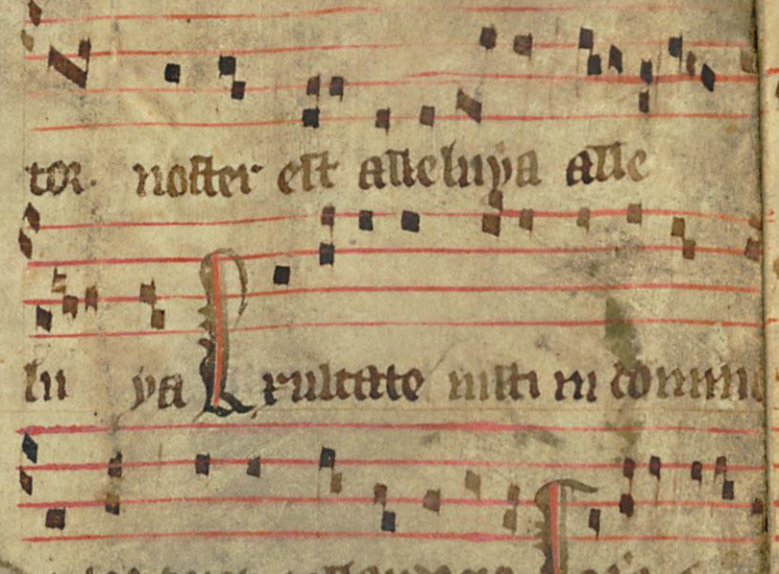 tor. noster est alleluya alle
lu ya Exultate iusti in domin